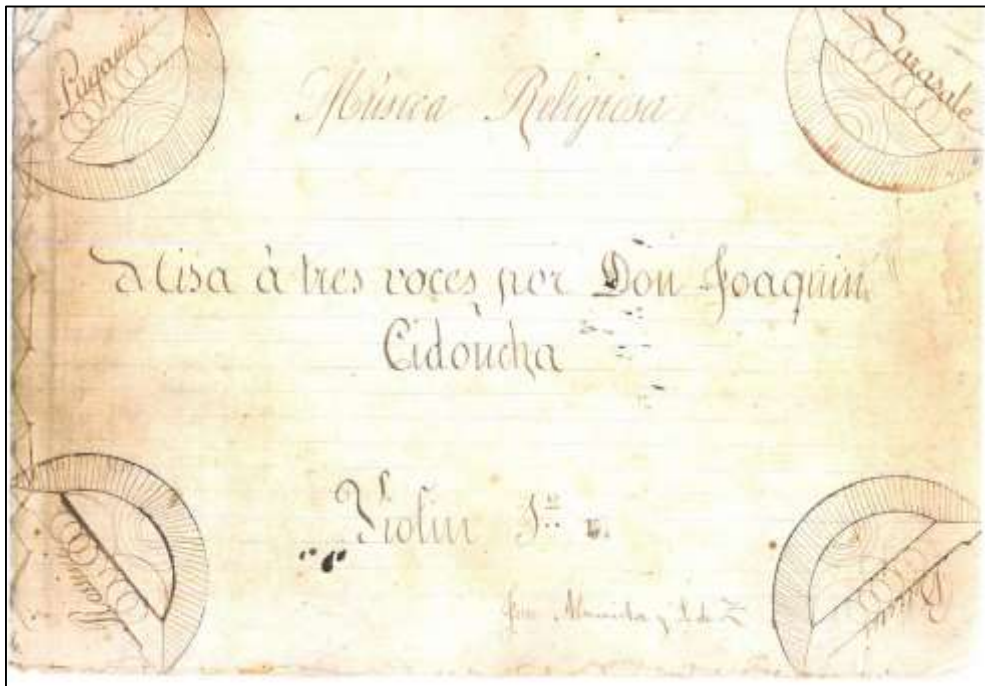 Paganini
Sarasate
Música Religiosa
Misa à tres voces por Don Joaquin
Cidoncha
Violin 1º